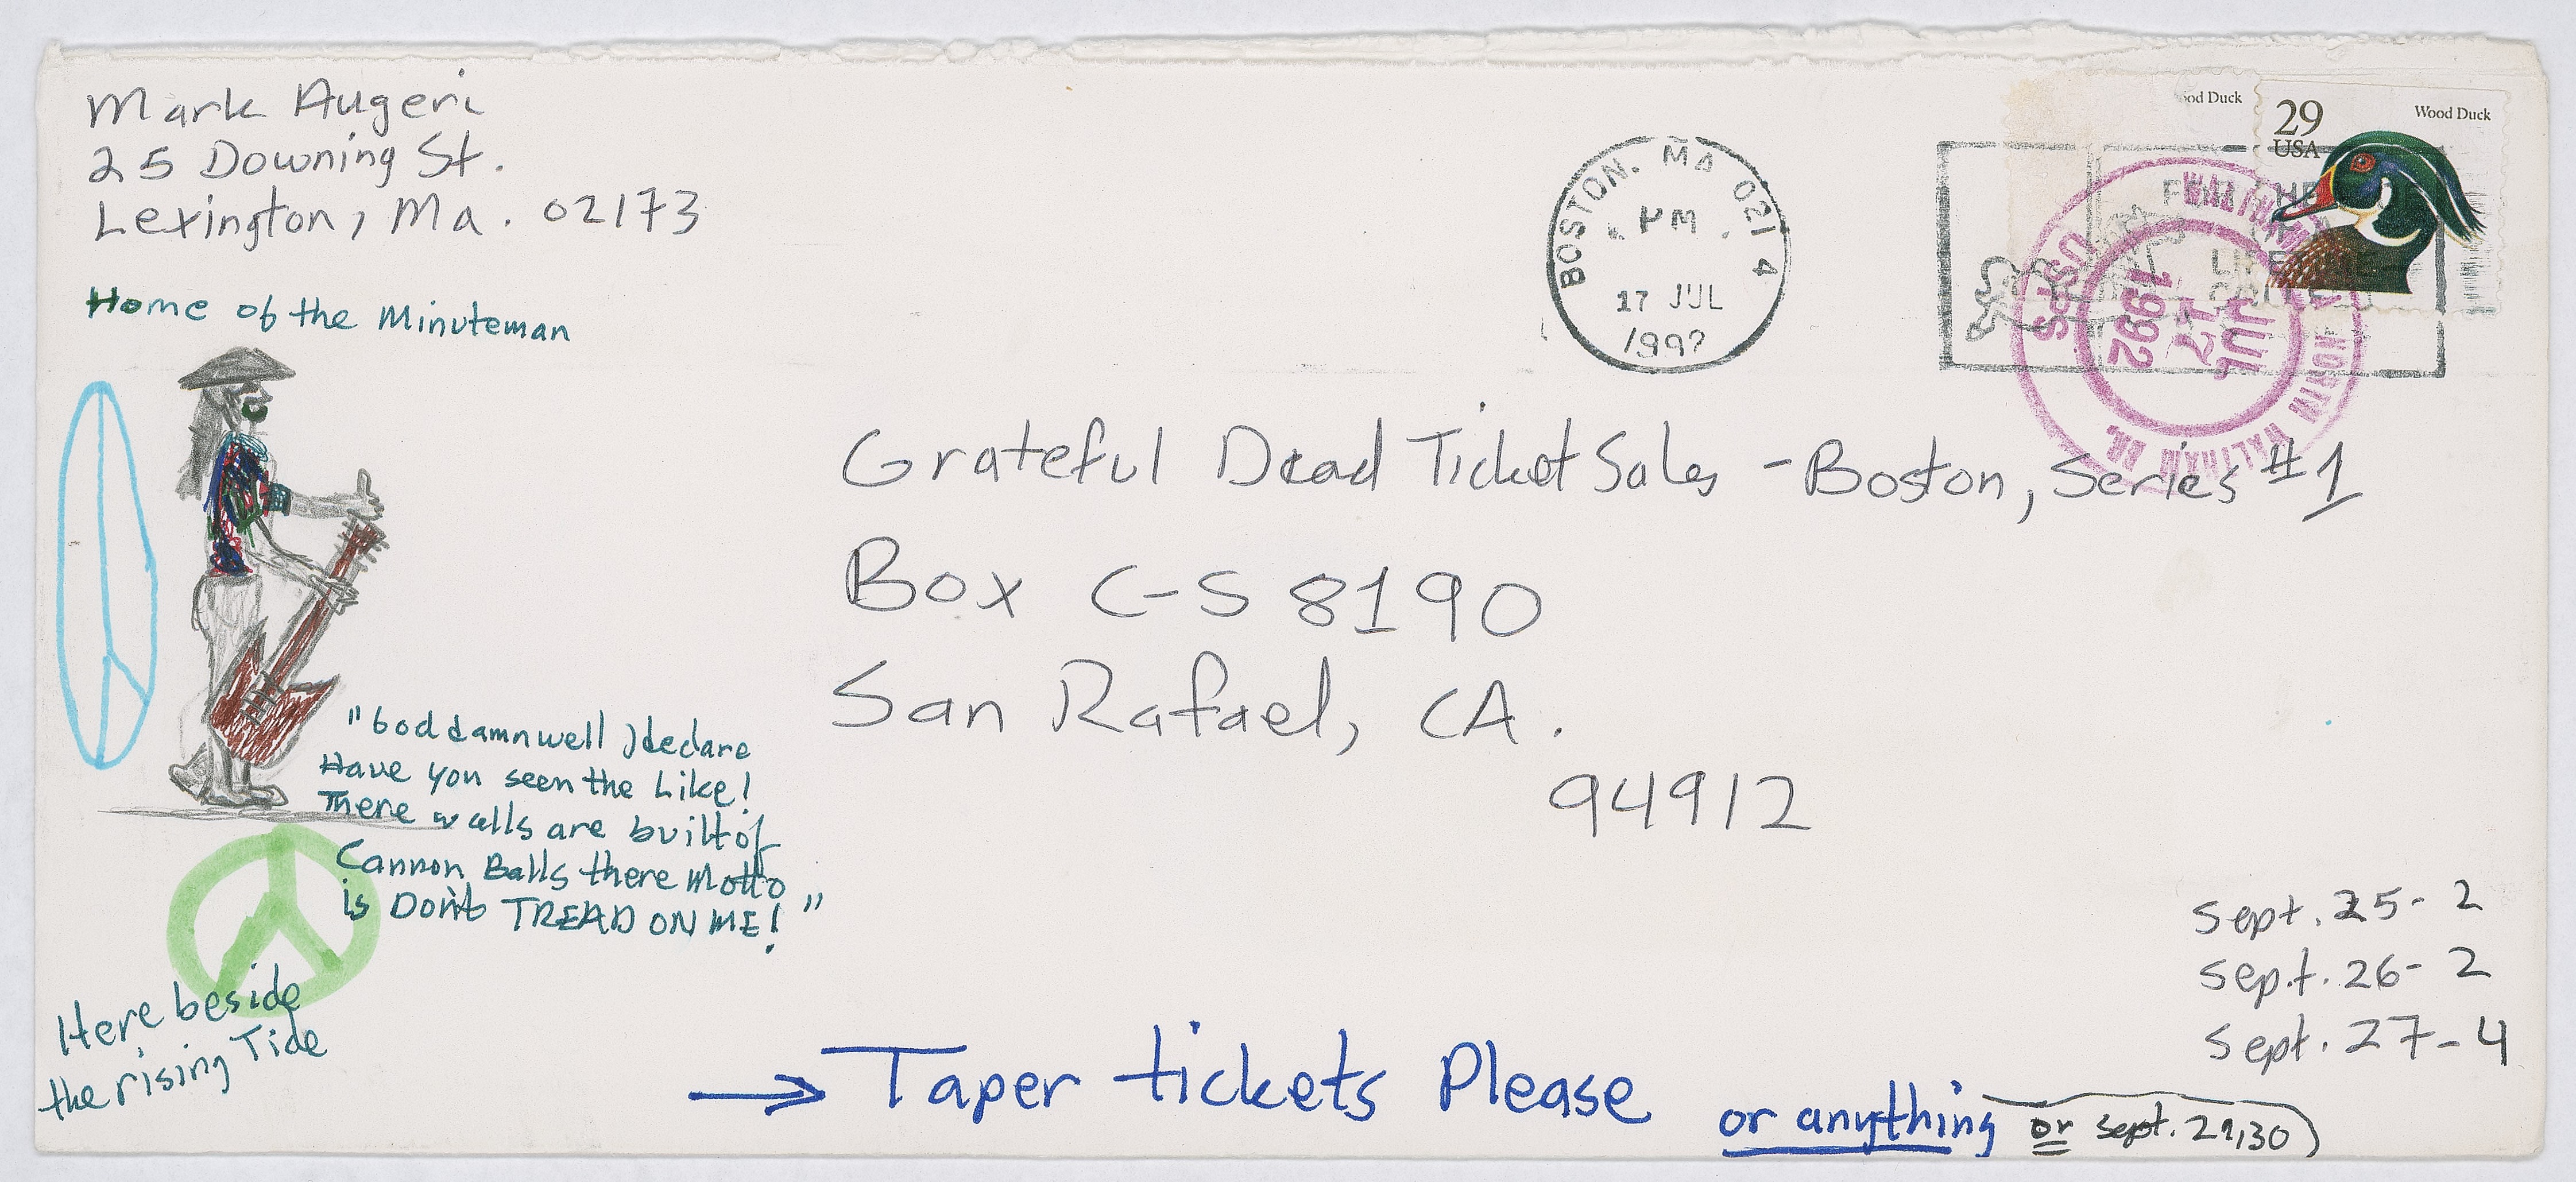 Mark Augeri
25 Downing St.
Lexington, Ma. 02173
Home of the Minuteman
BOSTON. MA 021 4
PM
17 JUL
1992
ood Duck
29
USA
Wood Duck
USPS
JUL
17
1992
NORTH WALTHAM
Grateful Dead Ticket Sales - Boston, Series #1
Box C-S 8190
San Rafael, CA.
94912
"God damn well I declare
Have you seen the Like!
There walls are built of
Cannon Balls there Motto
is Don't TREAD ON ME!"
Here beside
the rising Tide
Sept. 25 - 2
Sept. 26 - 2
Sept. 27 - 4
→ Taper tickets Please
or anything
or sept. 29,30)